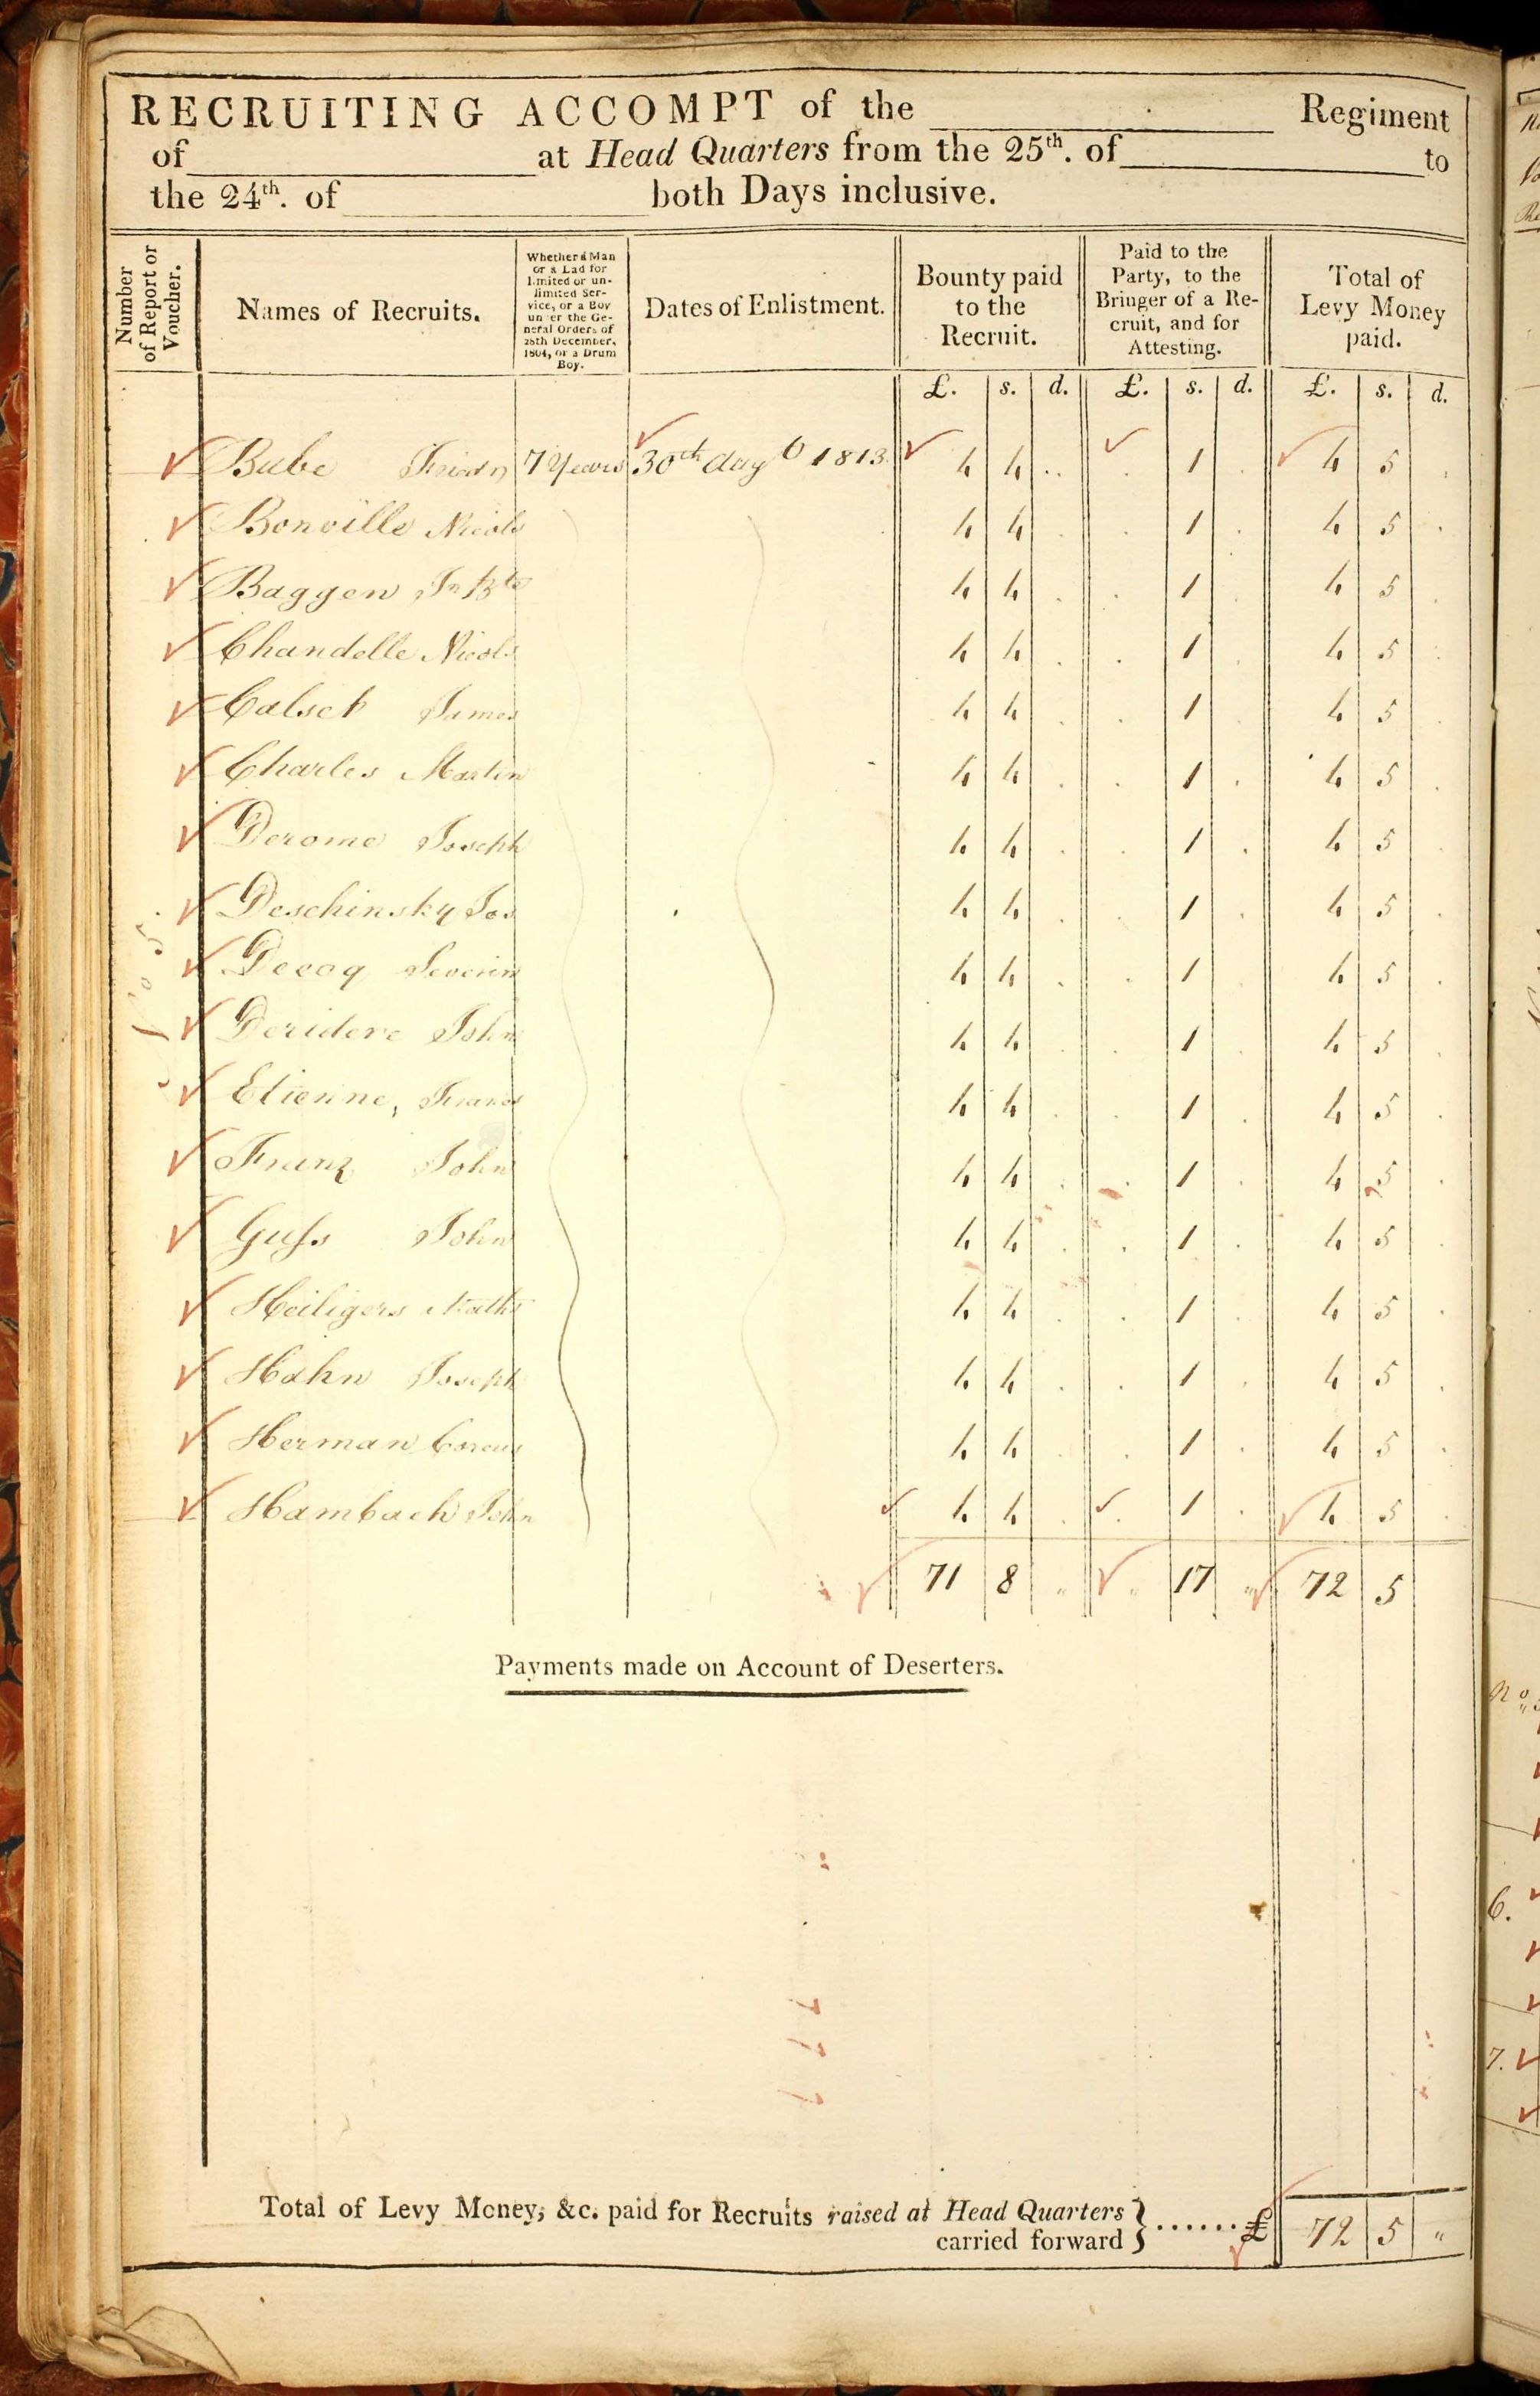 RECRUITING ACCOMPT of the Regiment
of at Head Quarters from the 25th. of to
the 24th. of both Days inclusive.
Number of Report or Voucher.
Names of Recruits.
Whether a Man or a Lad for limited or unlimited Service, or a Boy under the General Orders of 28th December, 1804, or a Drum Boy.
Dates of Enlistment.
Bounty paid to the Recruit.
Paid to the Party, to the Bringer of a Recruit, and for Attesting.
Total of Levy Money paid.
£. s. d. £. s. d. £. s. d.
No 5.
Bube 7 Years 30th 1813 4 4 . . 1 . 4 5 .
Bonville Nicols 4 4 . . 1 . 4 5 .
Baggen Jn Bte 4 4 . . 1 . 4 5 .
Chandelle Nicols 4 4 . . 1 . 4 5 .
James 4 4 . . 1 . 4 5 .
Charles Martin 4 4 . . 1 . 4 5 .
Derome Joseph 4 4 . . 1 . 4 5 .
Deschinsky Jos 4 4 . . 1 . 4 5 .
Decoq Severin 4 4 . . 1 . 4 5 .
Deridere John 4 4 . . 1 . 4 5 .
Etienne, Francs 4 4 . . 1 . 4 5 .
Franz John 4 4 . . 1 . 4 5 .
Guss John 4 4 . . 1 . 4 5 .
Heiligers Maths 4 4 . . 1 . 4 5 .
Hahn Joseph 4 4 . . 1 . 4 5 .
Herman 4 4 . . 1 . 4 5 .
Hambach John 4 4 . . 1 . 4 5 .
71 8 " " 17 " 72 5
Payments made on Account of Deserters.
Total of Levy Money, &c. paid for Recruits raised at Head Quarters
carried forward } ...... £ 72 5 "
No
6.
7.